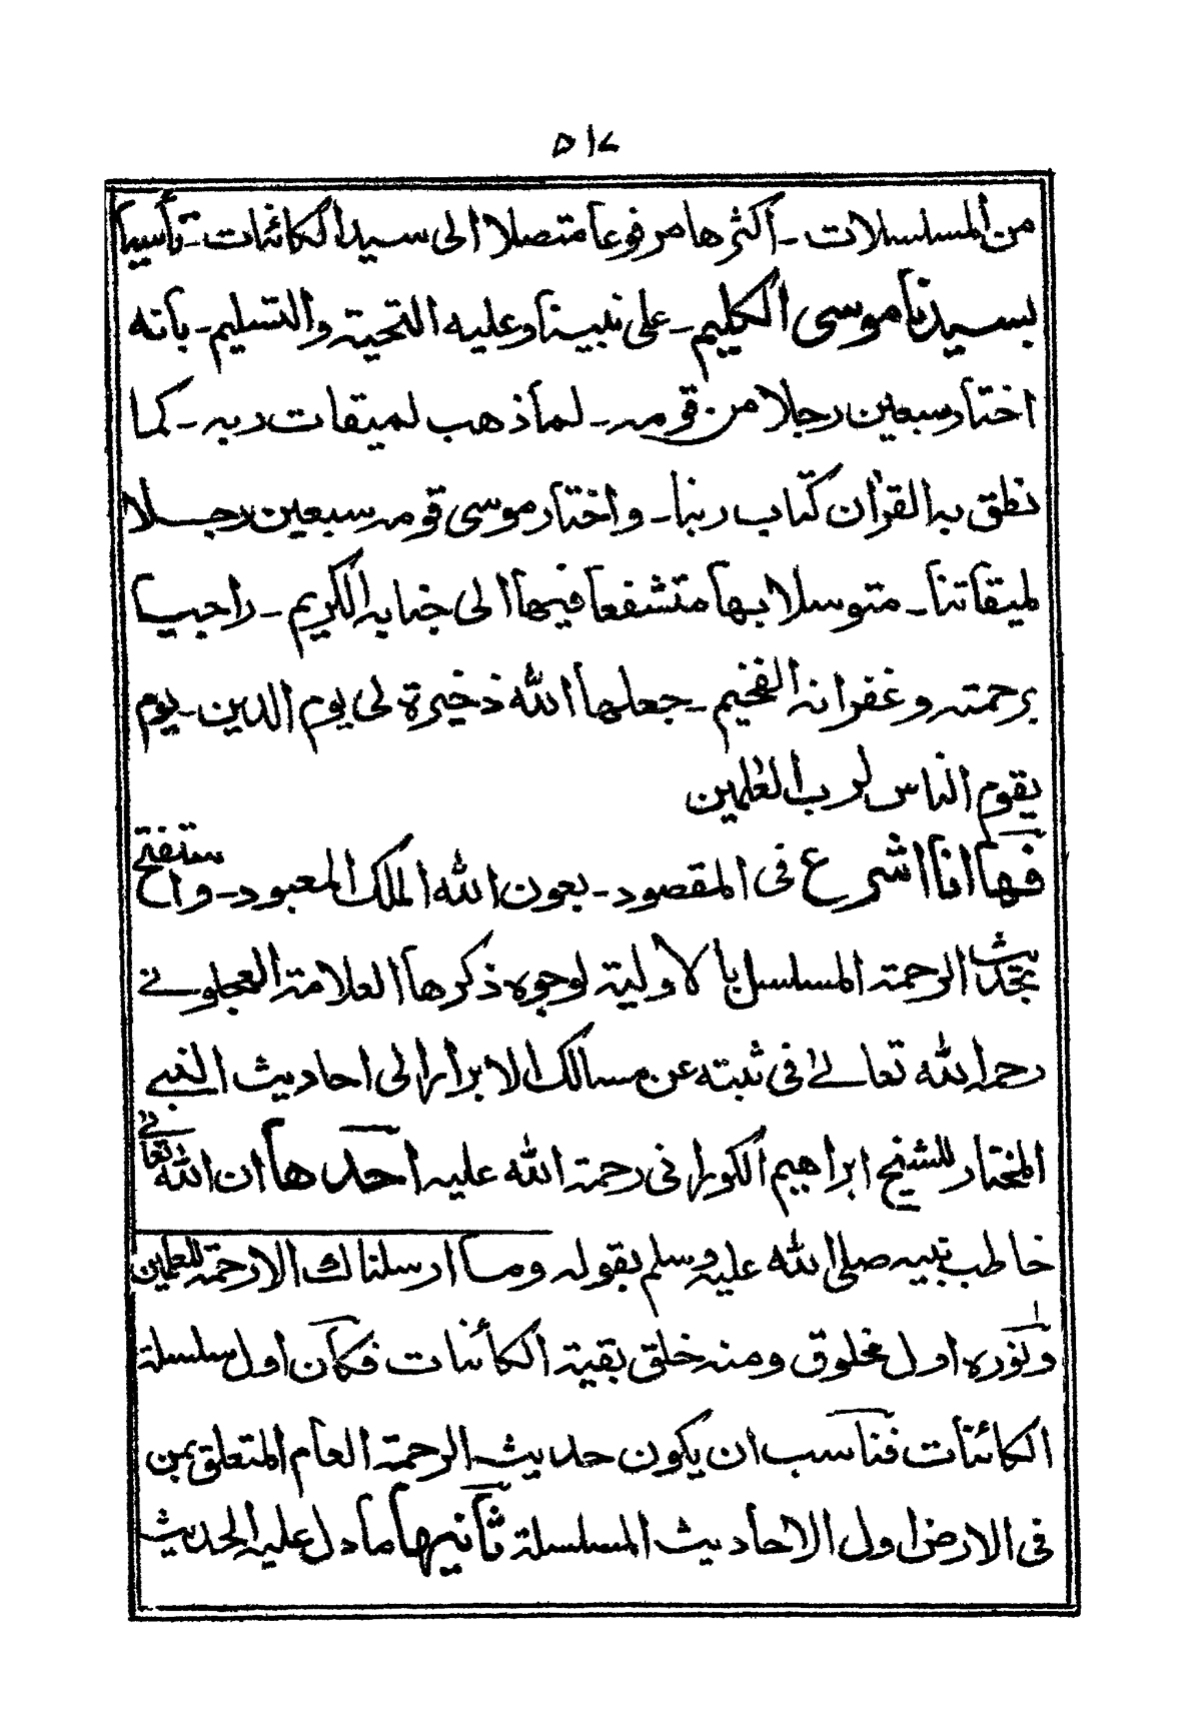 ٥١٧
من المسلسلات ـ أكثرها مرفوعا متصلا الى سيد الكائنات ـ تأسيا
بسيدنا موسى الكليم ـ على نبينا وعليه التحية والتسليم ـ بانه
اختار سبعين رجلا من قومه ـ لما ذهب لميقات ربه ـ كما
نطق به القرأن كتاب ربنا ـ واختار موسى قومه سبعين رجلا
لميقاتنا ـ متوسلا بها متشفعا فيها الى جنابه الكريم ـ راجيا
برحمته وغفرانه الفخيم ـ جعلها الله ذخيرة لى يوم الدين ـ يوم
يقوم الناس لرب العٰلمين
فها انا اشرع فى المقصود ـ بعون الله الملك المعبود ـ واستفتح
بحديث الرحمة المسلسل بالاولية لوجوه ذكرها العلامة العجلونے
رحمه الله تعالےٰ فى ثبته عن مسالك الابرار الى احاديث النبے
المختار للشيخ ابراهيم الكورانى رحمة الله عليه احدها ان الله تعالےٰ
خاطب نبيه صلى الله عليه وسلم بقوله وما ارسلناك الا رحمة للعلمين
ونوره اول مخلوق ومنه خلق بقية الكائنات فكان اول سلسلة
الكائنات فناسب ان يكون حديث الرحمة العام المتعلق بمن
فى الارض اول الاحاديث المسلسلة ثانيها ما دل عليه الحديث